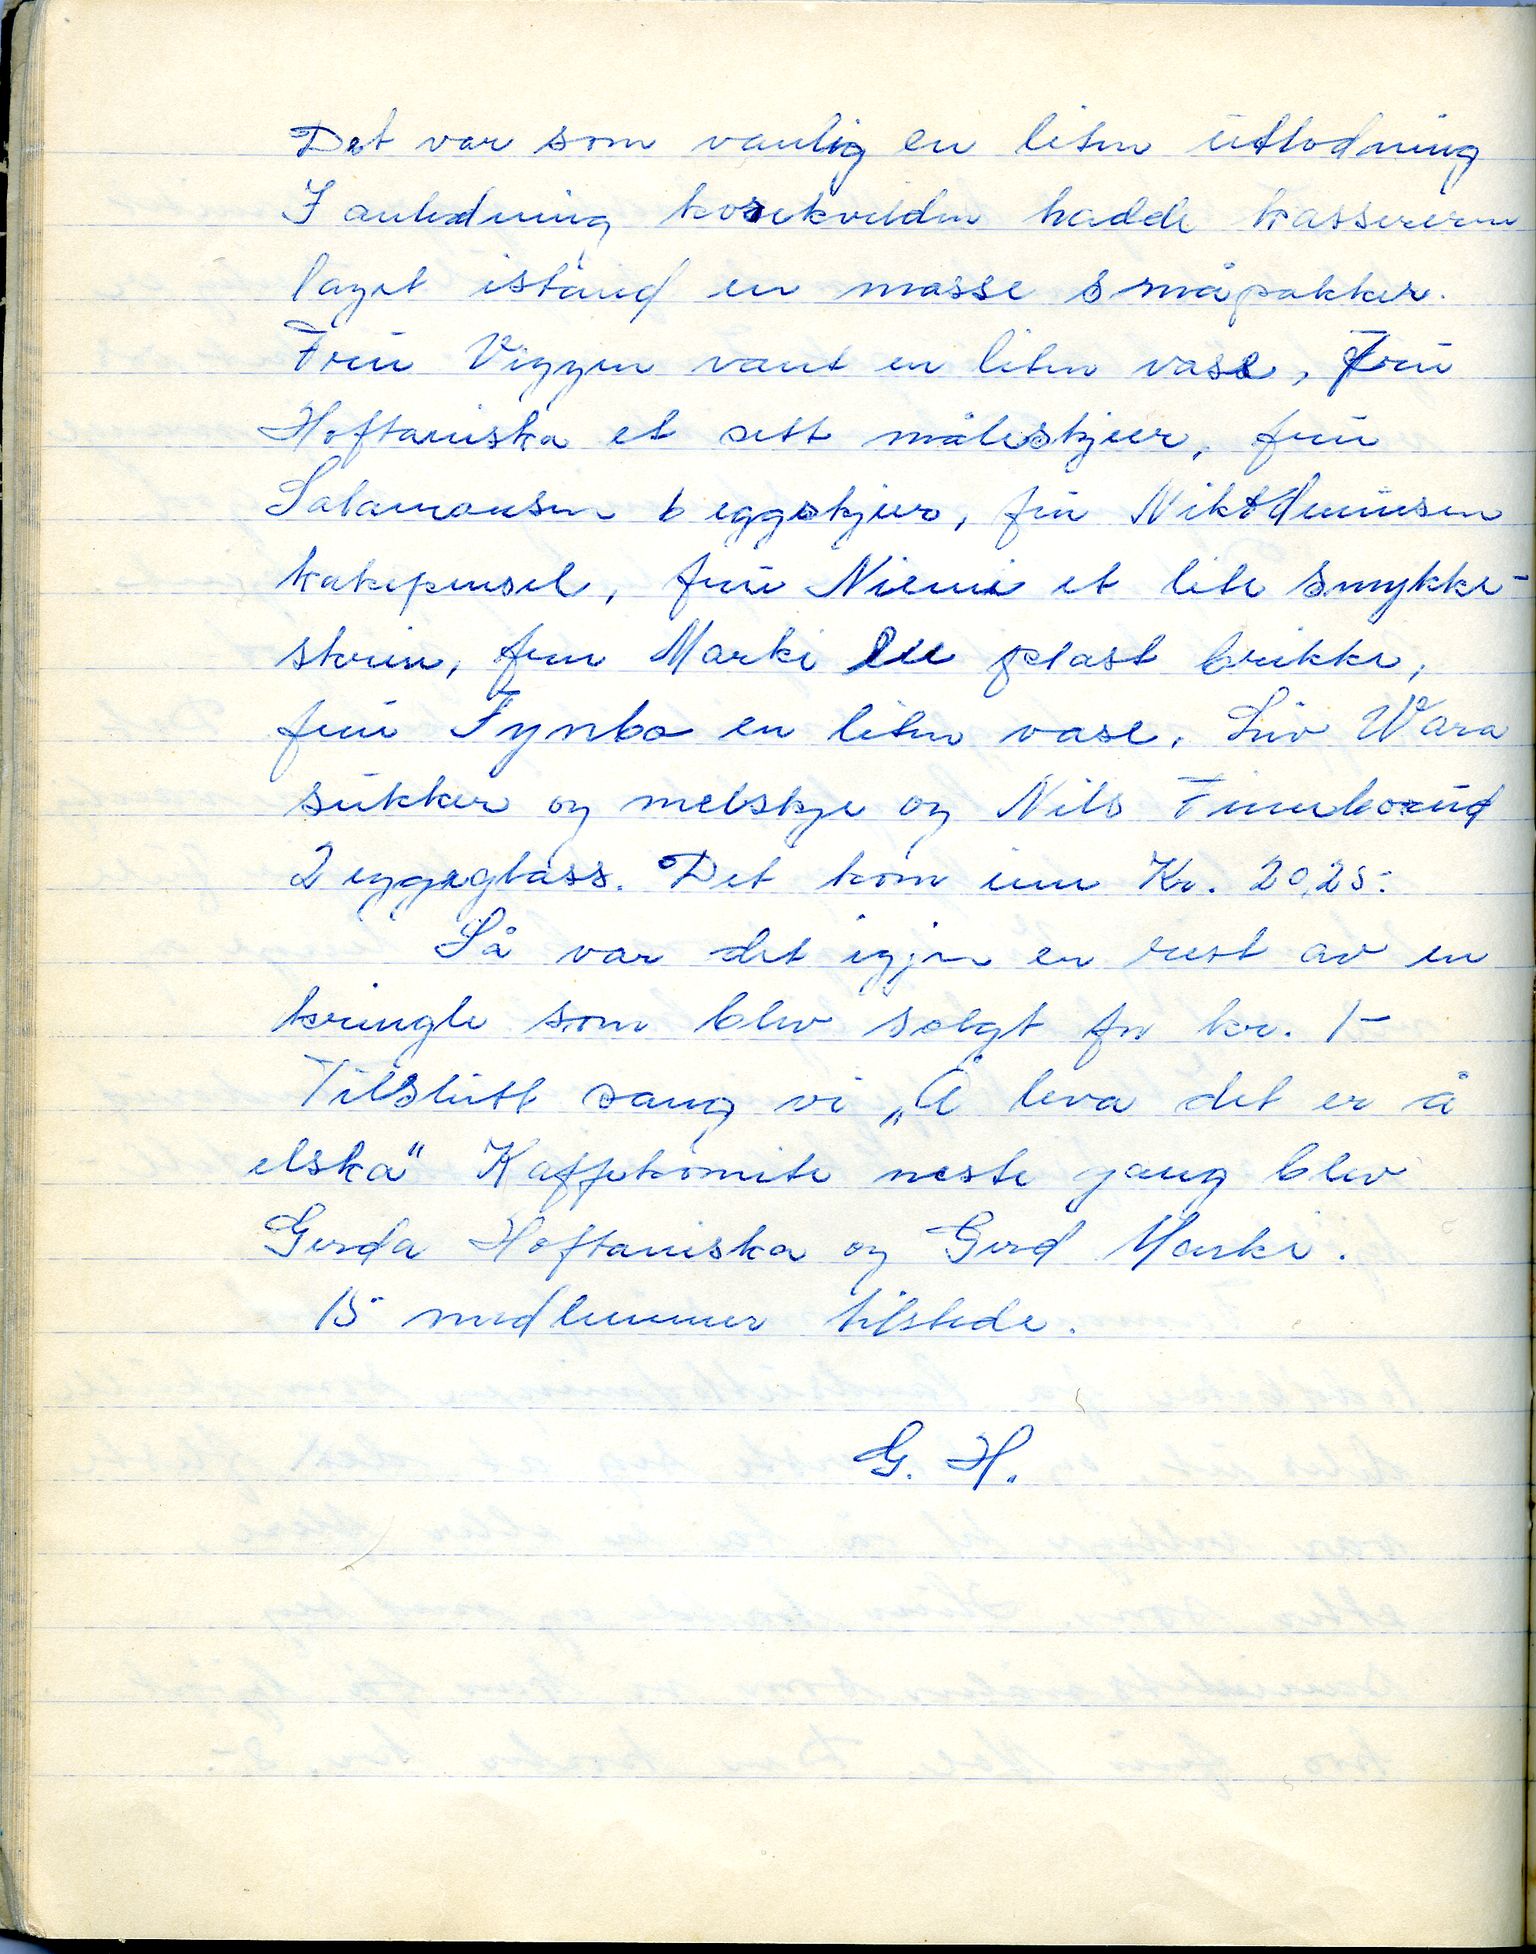 Det var som vanlig en liten utlodning
I anledning kosekvelden hadde kassereren
laget istand en masse småpakker.
Fru Viggen vant en liten vase, Fru
Hoftaniska et sett måleskjeer, fru
Salamonsen 6 eggeskjeer, fru Nikodemusen
kakepensel, fru Niemi et lite smykke-
skrin, fru Marki en plast brikke,
fru Fynbo en liten vase. Liv Wara
sukker og melskje og Nils Finnborud
2 eggeglass. Det kom inn Kr. 20,25.
Så var det igjen en rest av en
kringle som blev solgt for kr. 1-
Tilslutt sang vi „Å leva det er å
elska" Kaffekomite neste gang blev
Gerda Hoftaniska og Gerd Marki.
15 medlemmer tilstede.
G. H.